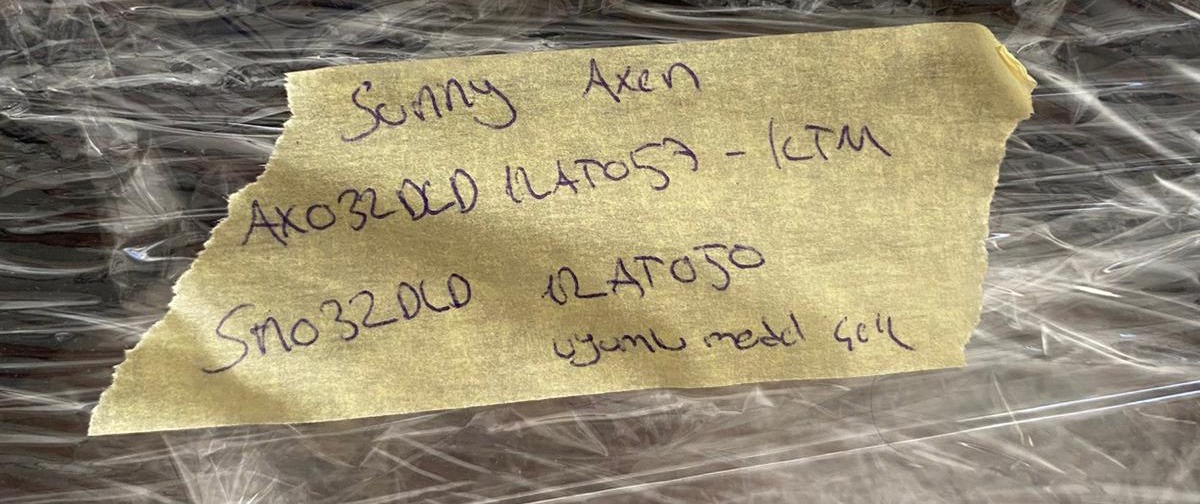 Sunny Axen
AX032DLD 12AT057 - KTM
SN032DLD 12AT050
uyumlu model çok